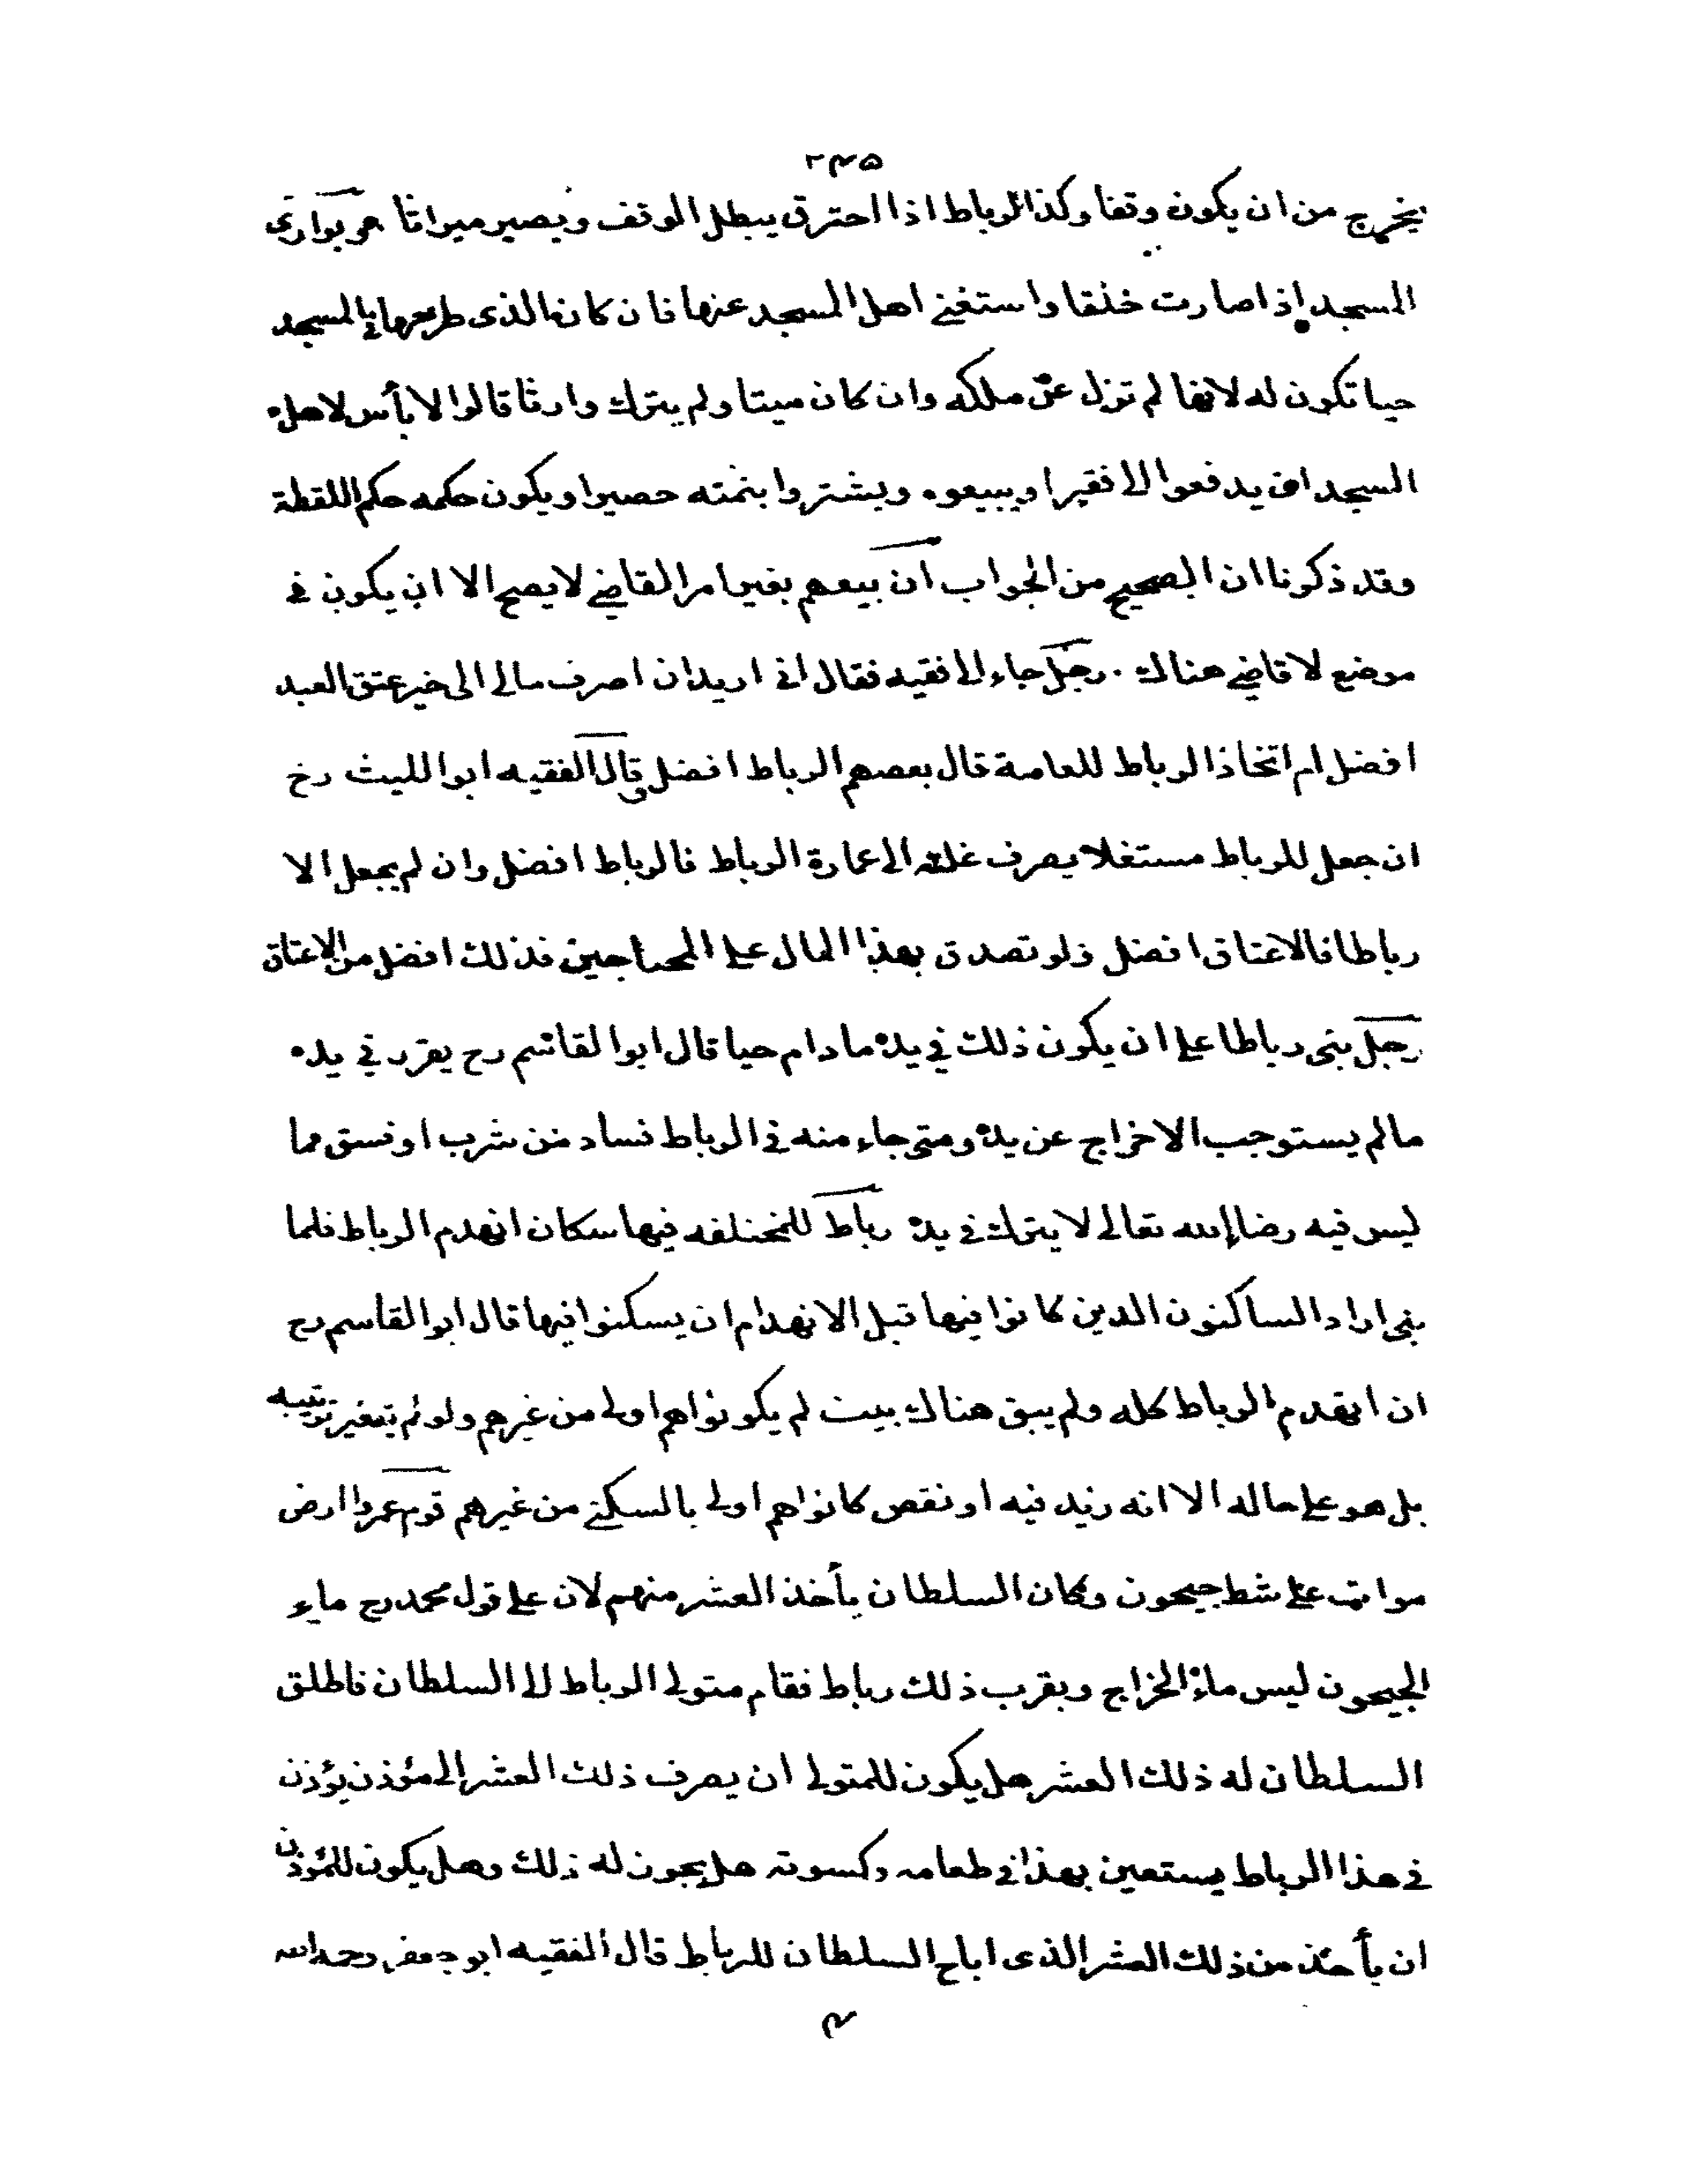 ۲۴۵
يخرج من ان يكون وقفا وكذا الرباط اذا احترق يبطل الوقف ويصير ميراثا بوارى
المسجد اذا صارت خلقا واستغنى اهل المسجد عنها فان كان الذى طرحها فى المسجد
حيا تكون له لانها لم تزل عن ملكه وان كان ميتا ولم يترك وارثا قالوا لا بأس لاهل
المسجد ان يدفعوا الى فقير او يبيعوه ويشتروا بثمنه حصيرا ويكون حكمه حكم اللقطة
وقد ذكرنا ان الصحيح من الجواب ان بيعهم بغير امر القاضى لا يصح الا ان يكون فى
موضع لا قاضى هناك . رجل جاء الى فقيه فقال انى اريد ان اصرف مالى الى خير عتق العبد
افضل ام اتخاذ الرباط للعامة قال بعضهم الرباط افضل وقال الفقيه ابوالليث رح
ان جعل للرباط مستغلا يصرف غلته الى عمارة الرباط فالرباط افضل وان لم يجعل الا
رباطا فالاعتاق افضل ولو تصدق بهذا المال على المحتاجين فذلك افضل من الاعتاق
رجل بنى رباطا على ان يكون ذلك في يده ما دام حيا قال ابوالقاسم رح يقرر في يده
مالم يستوجب الاخراج عن يده ومتى جاء منه فى الرباط فساد من شرب او فسق مما
ليس فيه رضا الله تعالى لا يترك فى يده رباط للمختلفه فيها سكان انهدم الرباط فلما
بنى اراد الساكنون الذين كانوا فيها قبل الانهدام ان يسكنوا فيها قال ابوالقاسم رح
ان انهدم الرباط كله ولم يبق هناك بيت لم يكونوا هم اولى من غيرهم ولو لم يتغير ترتيبه
بل هو على حاله الا انه زيد فيه او نقص كانوا هم اولى بالسكنى من غيرهم قوم عمروا ارض
موات على شط جيحون وكان السلطان يأخذ العشر منهم لان على قول محمد رح ماء
الجيحون ليس ماء الخراج وبقرب ذلك رباط فقام متولى الرباط الى السلطان فاطلق
السلطان له ذلك العشر هل يكون للمتولى ان يصرف ذلك العشر الى مؤذن يؤذن
فى هذا الرباط يستعين بهذا فى طعامه وكسوته هل يجوز له ذلك وهل يكون للمؤذن
ان يأخذ من ذلك العشر الذى اباح السلطان للرباط قال الفقيه ابوجعفر رحمه الله